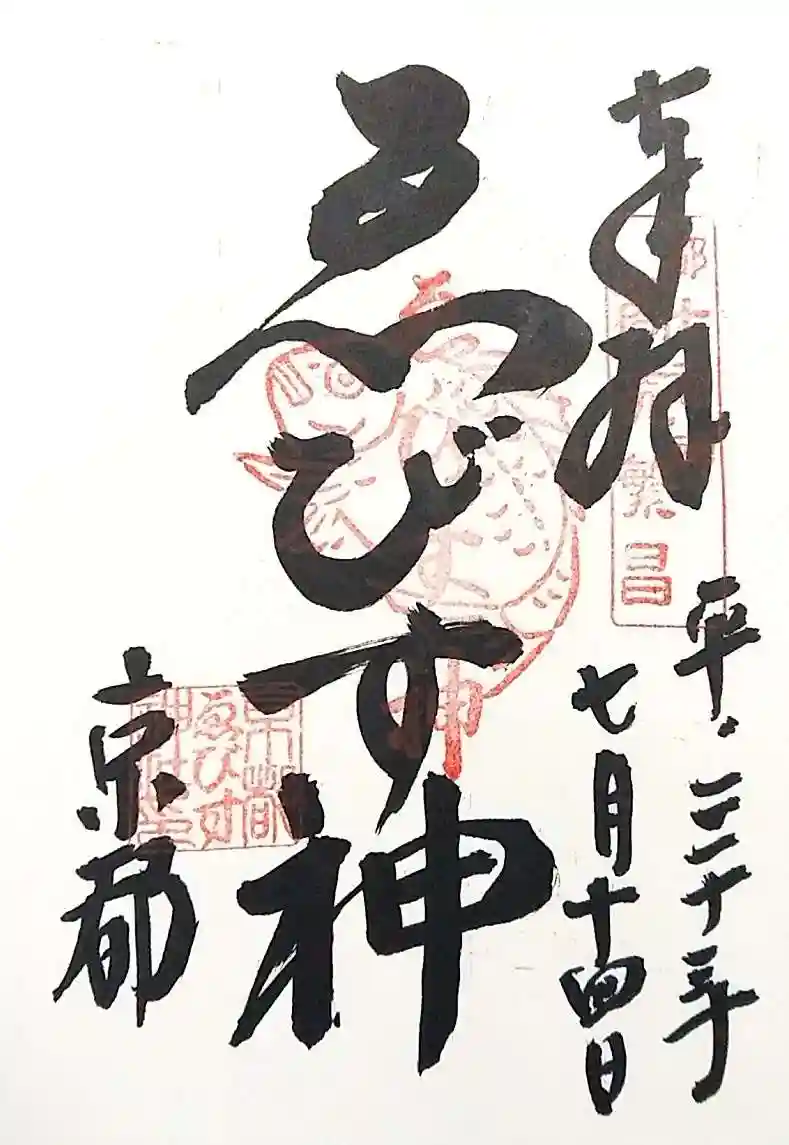 奉拝
平・二十三年
七月十四日
ゑびす神
京都
繁昌
京都
ゑびす